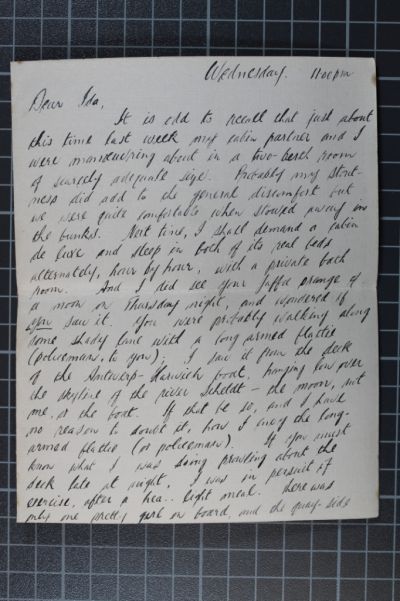 Wednesday. 11.00pm
Dear Ida,
It is odd to recall that just about
this time last week my cabin partner and I
were manoeuvring about in a two-berth room
of scarcely adequate size. Probably my stout-
ness did add to the general discomfort but
we were quite comfortable when stowed away in
the bunks. Next time, I shall demand a cabin
de luxe and sleep in both of its real beds
alternately, hour by hour, with a private bath
room. And I did see your Jaffa orange of
a moon on Thursday night, and wondered if
you saw it. You were probably walking along
some shady lane with a long armed flattie
(policeman, to you). I saw it from the deck
of the Antwerp-Harwich boat, hanging low over
the skyline of the river Scheldt – the moon, not
me, or the boat. If that be so, and I have
no reason to doubt it, how I envy the long-
armed flattie (or policeman). If you must
know what I was doing prowling about the
deck late at night, I was in pursuit of
exercise, after a hea.. light meal. There was
only one pretty girl on board, and the quay-side